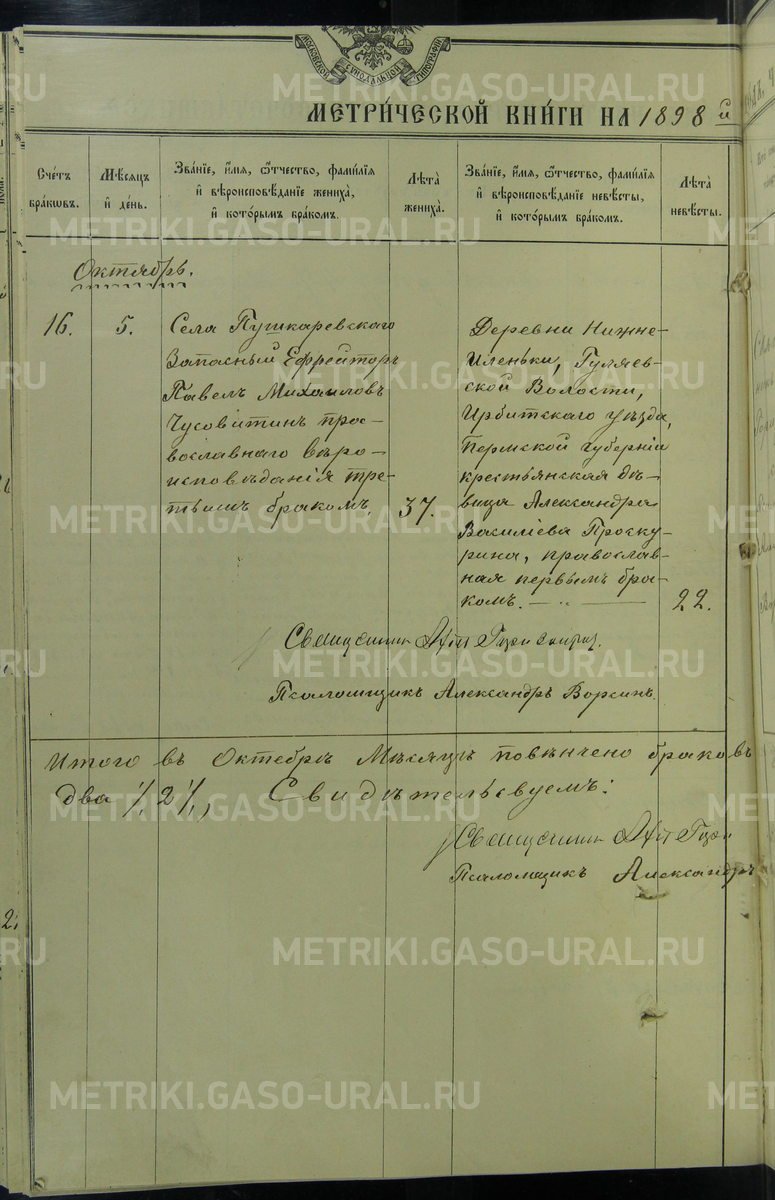 МОСКОВСКОЙ СѴНОДАЛЬНОЙ ТИПОГРАФІИ
МЕТРИ́ЧЕСКОЙ КНИ́ГИ НА 1898 й
Сче́тъ бра́кѡвъ.
Мѣ́сѧцъ и҆ де́нь.
Зва́нїе, и҆́мѧ, ѻ҆́тчество, фами́лїѧ
и҆ вѣроисповѣ́данїе жениха̀,
и҆ кото́рымъ бра́комъ.
Лѣ́та жениха̀.
Зва́нїе, и҆́мѧ, ѻ҆́тчество, фами́лїѧ
и҆ вѣроисповѣ́данїе невѣ́сты,
и҆ кото́рымъ бра́комъ.
Лѣ́та невѣ́сты.
Октябрь.
16.
5.
Села Пушкаревскаго
Запасный Ефрейторъ
Павелъ Михаиловъ
Чусовитинъ пра-
вославнаго вѣро-
исповѣданія тре-
тьимъ бракомъ,
37.
Деревни Нижне-
Иленьки, Гуляев-
ской Волости,
Ирбитскаго уѣзда,
Пермской губерніи
крестьянская дѣ-
вица Александра
Василіева Проску-
рина, православ-
ная первымъ бра-
комъ.
22.
Священник
Псаломщикъ Александръ Ворсин.
Итого въ Октебрѣ Мѣсяцѣ повѣнчено браковъ
два /2/, Свидѣтельсвуемъ:
Священник
Псаломщикъ Александръ
METRIKI.GASO-URAL.RU